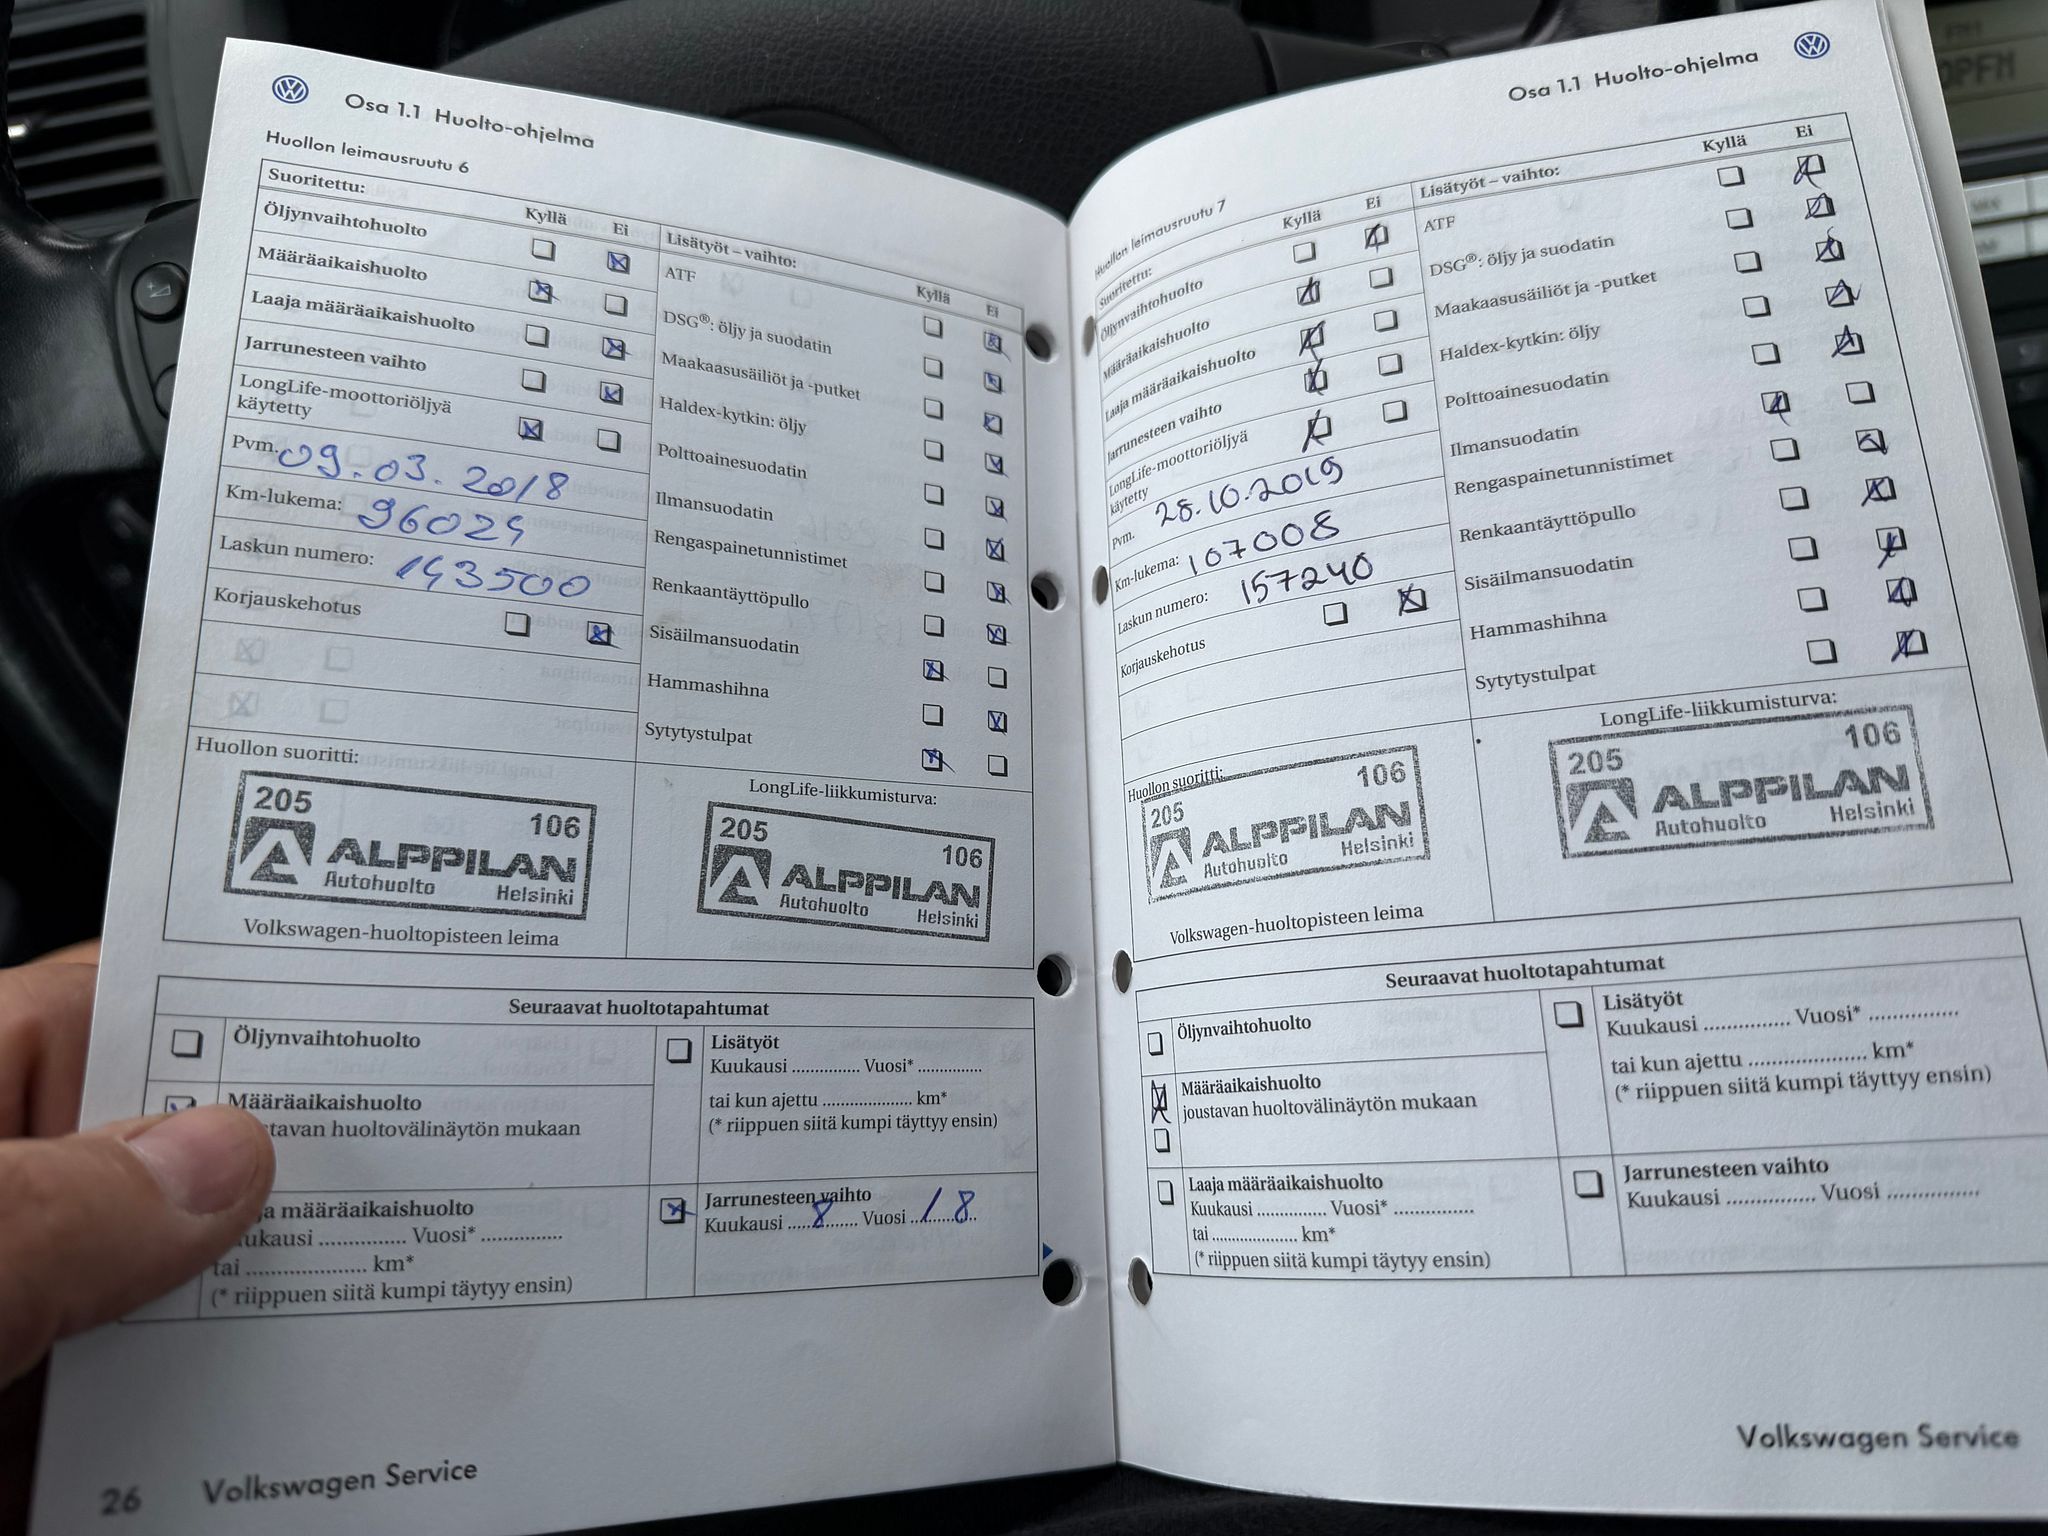 Osa 1.1 Huolto-ohjelma
Huollon leimausruutu 6
Suoritettu:
Kyllä Ei
Öljynvaihtohuolto
Määräaikaishuolto
Laaja määräaikaishuolto
Jarrunesteen vaihto
LongLife-moottoriöljyä
käytetty
Pvm. 09.03.2018
Km-lukema: 96024
Laskun numero: 143500
Korjauskehotus
Lisätyöt – vaihto:
Kyllä Ei
ATF
DSG®: öljy ja suodatin
Maakaasusäiliöt ja -putket
Haldex-kytkin: öljy
Polttoainesuodatin
Ilmansuodatin
Rengaspainetunnistimet
Renkaantäyttöpullo
Sisäilmansuodatin
Hammashihna
Sytytystulpat
Huollon suoritti:
205 106
ALPPILAN
Autohuolto Helsinki
Volkswagen-huoltopisteen leima
LongLife-liikkumisturva:
205 106
ALPPILAN
Autohuolto Helsinki
Seuraavat huoltotapahtumat
Öljynvaihtohuolto
Määräaikaishuolto
stavan huoltovälinäytön mukaan
ja määräaikaishuolto
ukausi ............... Vuosi* ..............
tai ..................... km*
(* riippuen siitä kumpi täytyy ensin)
Lisätyöt
Kuukausi ............... Vuosi* ..............
tai kun ajettu .................... km*
(* riippuen siitä kumpi täyttyy ensin)
Jarrunesteen vaihto
Kuukausi .....8....... Vuosi ...18...
26 Volkswagen Service
Osa 1.1 Huolto-ohjelma
Huollon leimausruutu 7
Suoritettu:
Kyllä Ei
Öljynvaihtohuolto
Määräaikaishuolto
Laaja määräaikaishuolto
Jarrunesteen vaihto
LongLife-moottoriöljyä
käytetty
Pvm. 28.10.2019
Km-lukema: 107008
Laskun numero: 157240
Korjauskehotus
Lisätyöt – vaihto:
Kyllä Ei
ATF
DSG®: öljy ja suodatin
Maakaasusäiliöt ja -putket
Haldex-kytkin: öljy
Polttoainesuodatin
Ilmansuodatin
Rengaspainetunnistimet
Renkaantäyttöpullo
Sisäilmansuodatin
Hammashihna
Sytytystulpat
Huollon suoritti:
205 106
ALPPILAN
Autohuolto Helsinki
Volkswagen-huoltopisteen leima
LongLife-liikkumisturva:
205 106
ALPPILAN
Autohuolto Helsinki
Seuraavat huoltotapahtumat
Öljynvaihtohuolto
Määräaikaishuolto
joustavan huoltovälinäytön mukaan
Laaja määräaikaishuolto
Kuukausi ............... Vuosi* ..............
tai .................... km*
(* riippuen siitä kumpi täytyy ensin)
Lisätyöt
Kuukausi ............... Vuosi* ...............
tai kun ajettu .................... km*
(* riippuen siitä kumpi täyttyy ensin)
Jarrunesteen vaihto
Kuukausi ............... Vuosi ................
Volkswagen Service